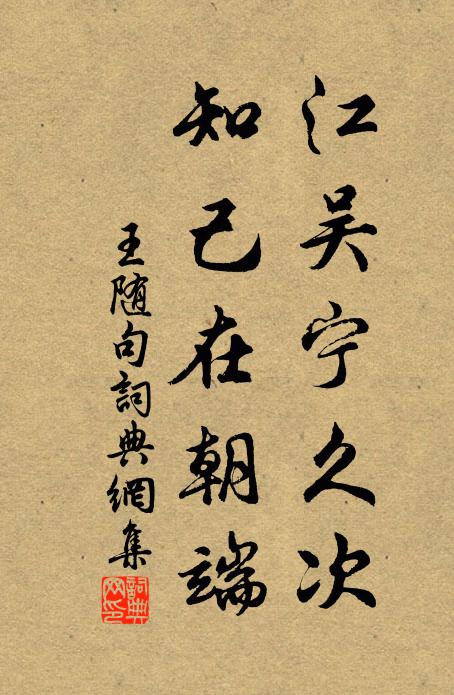 江吴宁久次
知己在朝端
王随句詞典網集
詞典网印